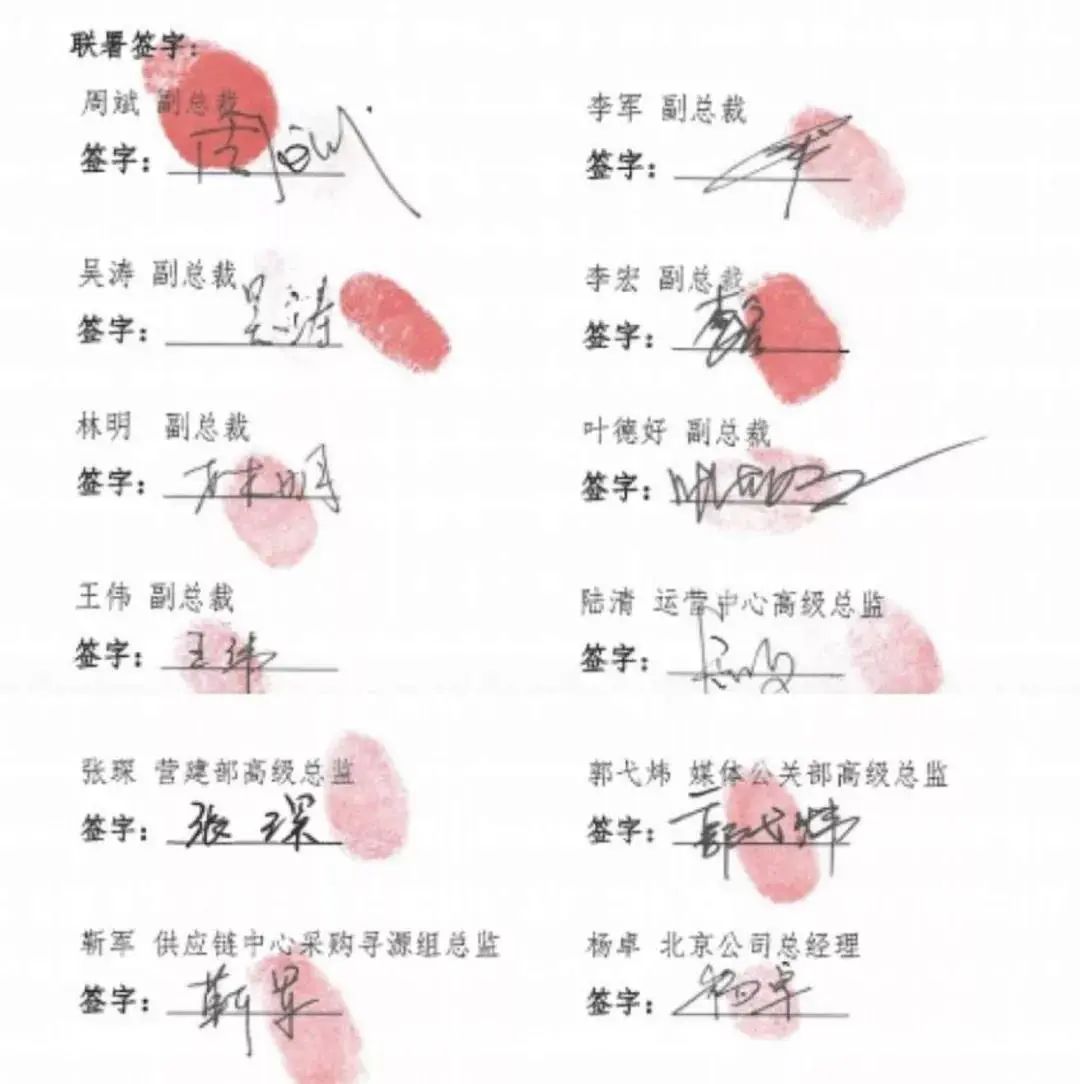 联署签字:
周斌 副总裁 李军 副总裁
签字: 签字:
吴涛 副总裁 李宏 副总裁
签字: 吴涛 签字:
林明 副总裁 叶德好 副总裁
签字: 林明 签字:
王伟 副总裁 陆清 运营中心高级总监
签字: 王玮 签字:
张琛 营建部高级总监 郭弋炜 媒体公关部高级总监
签字: 张琛 签字: 郭弋炜
靳军 供应链中心采购寻源组总监 杨卓 北京公司总经理
签字: 靳军 签字: 杨卓